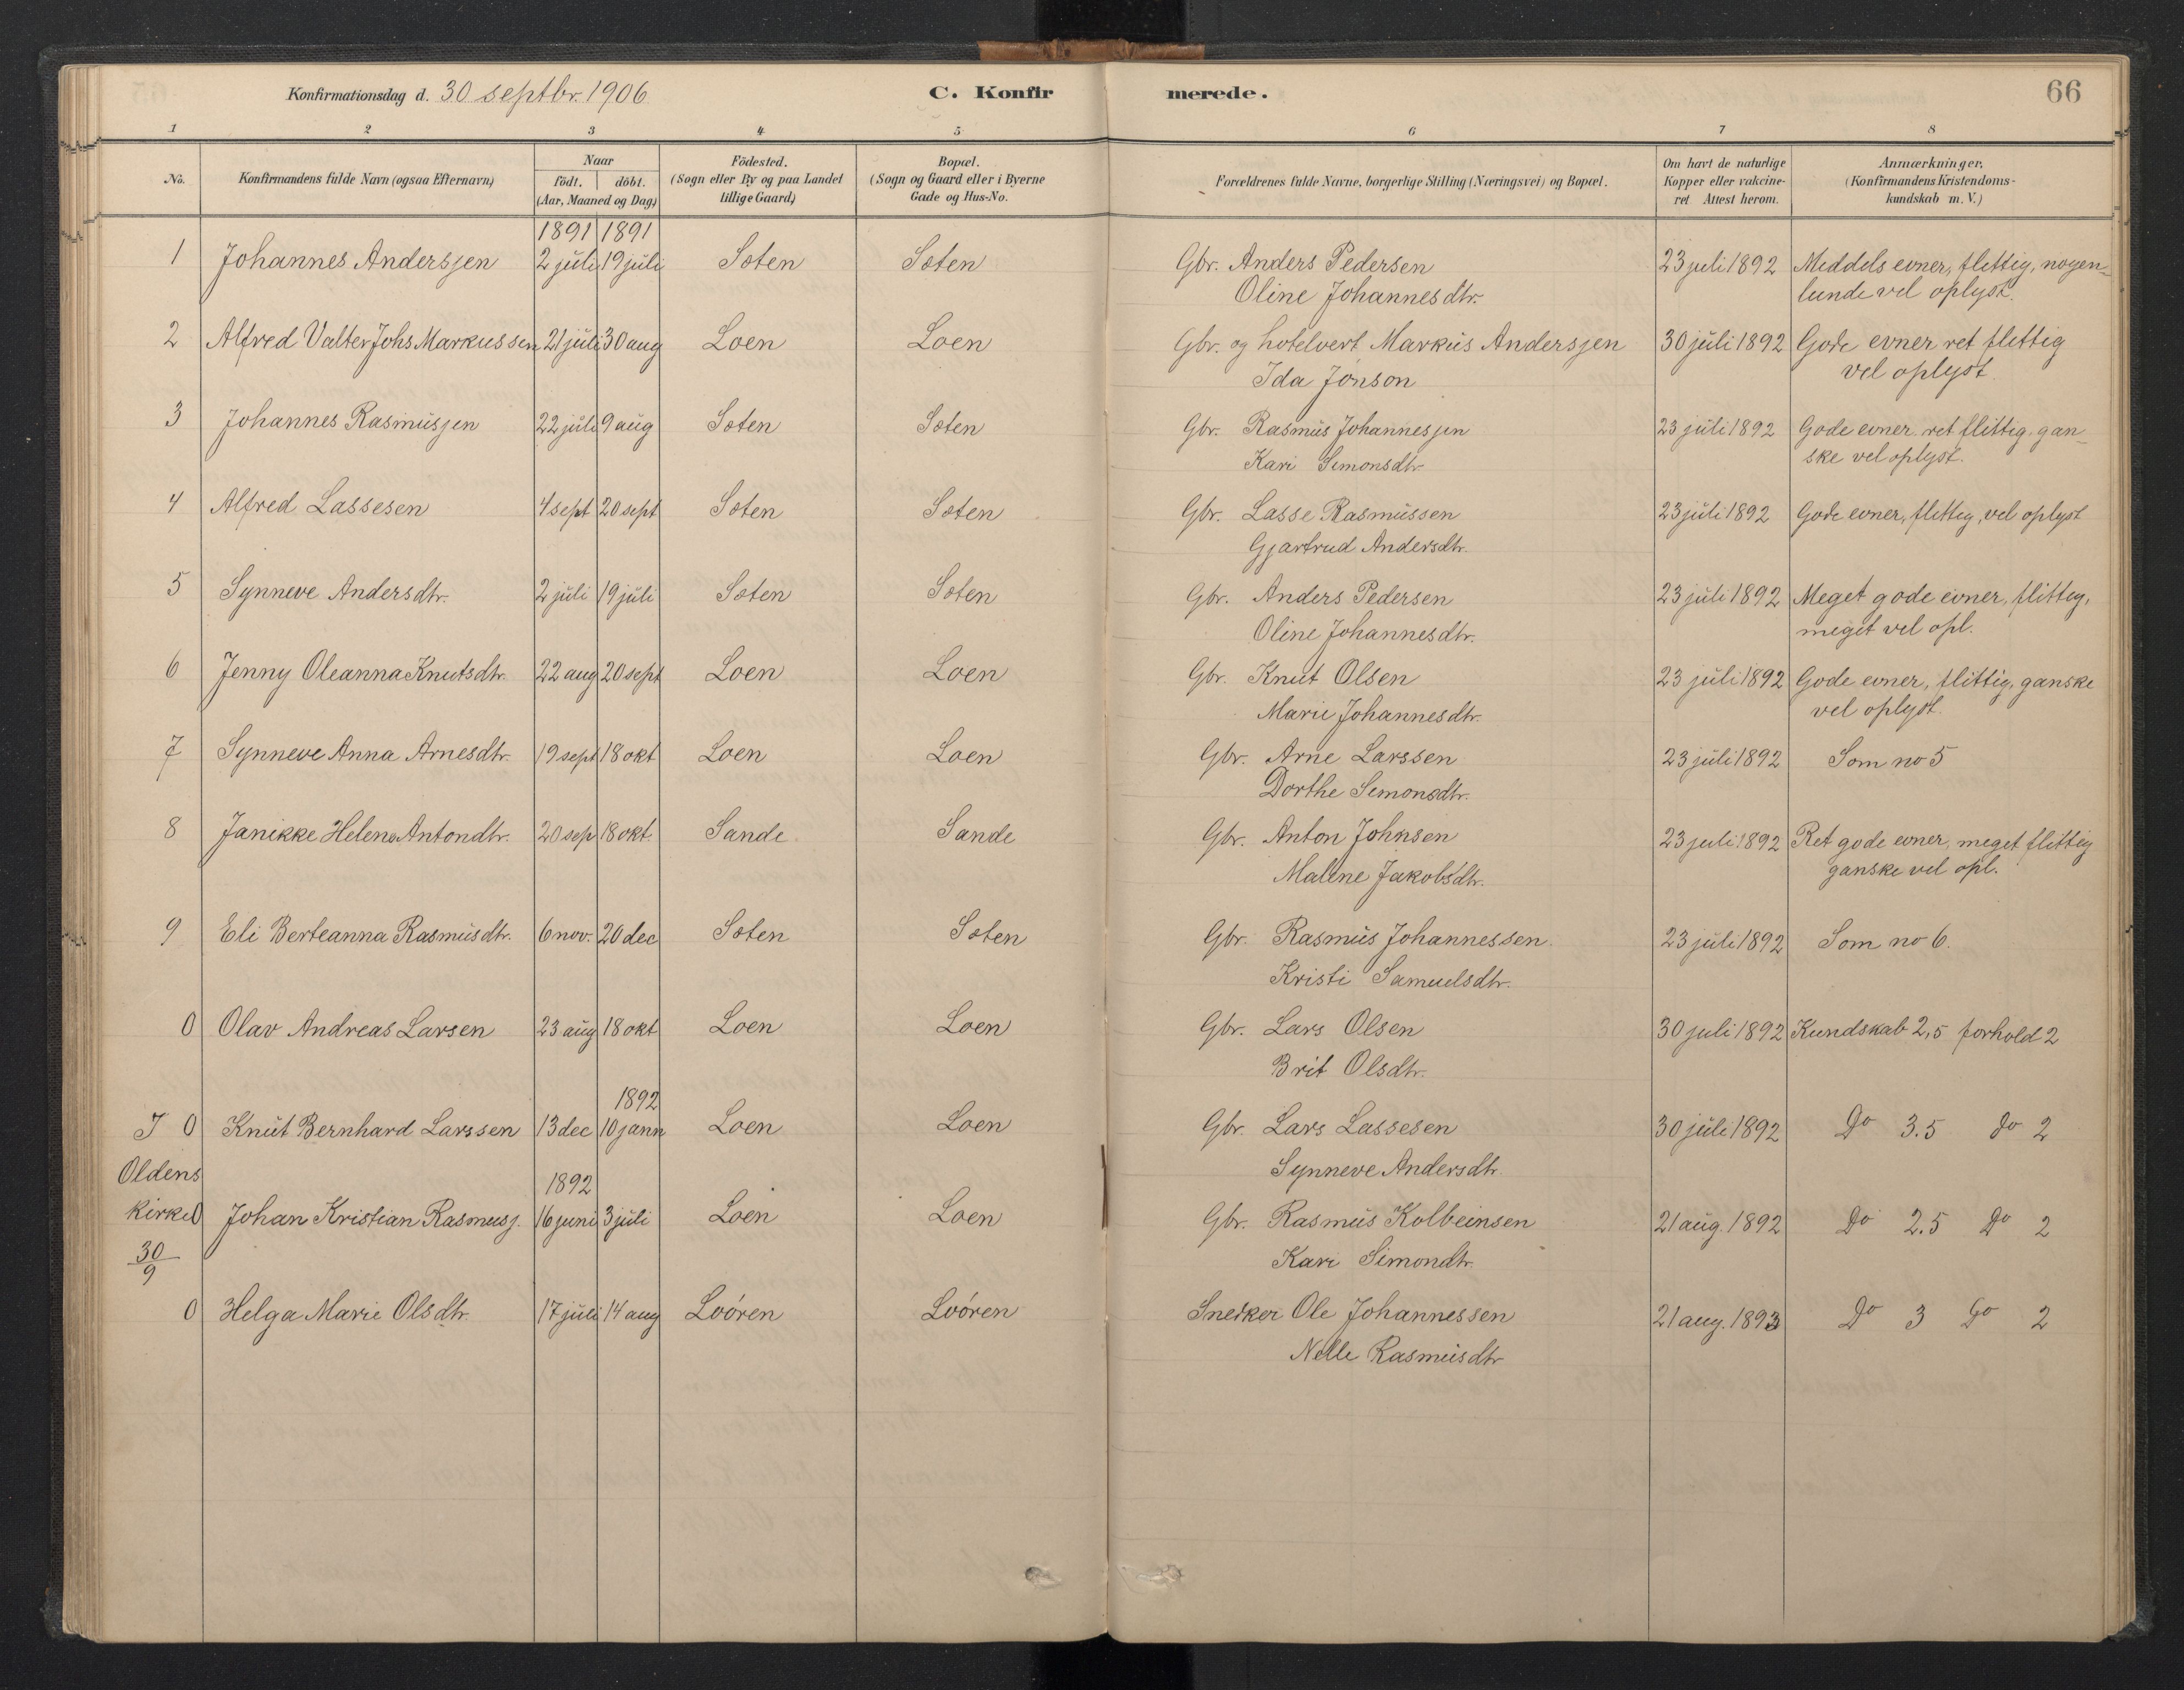 Konfirmationsdag d. 30 septbr. 1906
C. Konfirmerede.
66
1 2 3 4 5 6 7 8
No.
Konfirmandens fulde Navn (ogsaa Efternavn)
Naar
födt. döbt.
(Aar, Maaned og Dag)
Födested.
(Sogn eller By og paa Landet
tillige Gaard)
Bopæl.
(Sogn og Gaard eller i Byerne
Gade og Hus-No.
Forældrenes fulde Navne, borgerlige Stilling (Næringsvei) og Bopæl.
Om havt de naturlige
Kopper eller vakcine-
ret Attest herom.
Anmærkninger.
(Konfirmandens Kristendoms-
kundskab m. V.)
1891 1891
1 Johannes Anderssen 2 juli 19 juli Sæten Sæten Gbr. Anders Pedersen 23 juli 1892 Middels evner, flittig, nogen-
Oline Johannesdtr. lunde vel oplyst.
2 Alfred Valter Johs Markussen 21 juli 30 aug Loen Loen Gbr. og hotelvert Markus Anderssen 30 juli 1892 Gode evner ret flittig
Ida Jonson vel oplyst
3 Johannes Rasmussen 22 juli 9 aug Sæten Sæten Gbr. Rasmus Johannessen 23 juli 1892 Gode evner ret flittig, gan-
Kari Simonsdtr ske vel oplyst.
4 Alfred Lassesen 4 sept 20 sept Sæten Sæten Gbr. Lasse Rasmussen 23 juli 1892 Gode evner, flittig, vel oplyst
Gjartrud Andersdtr.
5 Synneve Andersdtr. 2 juli 19 juli Sæten Sæten Gbr. Anders Pedersen 23 juli 1892 Meget gode evner, flittig,
Oline Johannesdtr. meget vel opl.
6 Jenny Oleanna Knutsdtr. 22 aug 20 sept Loen Loen Gbr. Knut Olsen 23 juli 1892 Gode evner, flittig, ganske
Marie Johannesdtr. vel oplyst.
7 Synneve Anna Arnesdtr. 19 sept 18 okt Loen Loen Gbr. Arne Larssen 23 juli 1892 Som no 5
Dorthe Simonsdtr.
8 Janikke Helene Antondtr. 20 sep 18 okt. Sande Sande Gbr. Anton Johnsen 23 juli 1892 Ret gode evner, meget flittig
Maline Jakobsdtr. ganske vel opl.
9 Eli Berteanna Rasmusdtr. 6 nov. 20 dec Sæten Sæten Gbr. Rasmus Johannessen 23 juli 1892 Som no 6.
Kristi Samuelsdtr.
0 Olav Andreas Larsen 23 aug 18 okt Loen Loen Gbr. Lars Olsen 30 juli 1892 Kundskab 2,5 forhold 2
Brit Olsdtr.
1892
I 0 Knut Bernhard Larssen 13 dec 10 jann Loen Loen Gbr. Lars Lassesen 30 juli 1892 Do 3.5 Do 2
Oldens Synneve Andersdtr.
1892
kirke 0 Johan Kristian Rasmuss. 16 juni 3 juli Loen Loen Gbr. Rasmus Kolbeinsen 21 aug. 1892 Do 2.5 Do 2
30/9 Kari Simondtr.
0 Helga Marie Olsdtr. 17 juli 14 aug Loóren Loóren Snedker Ole Johannessen 21 aug. 1893 Do 3 Do 2
Nelle Rasmusdtr